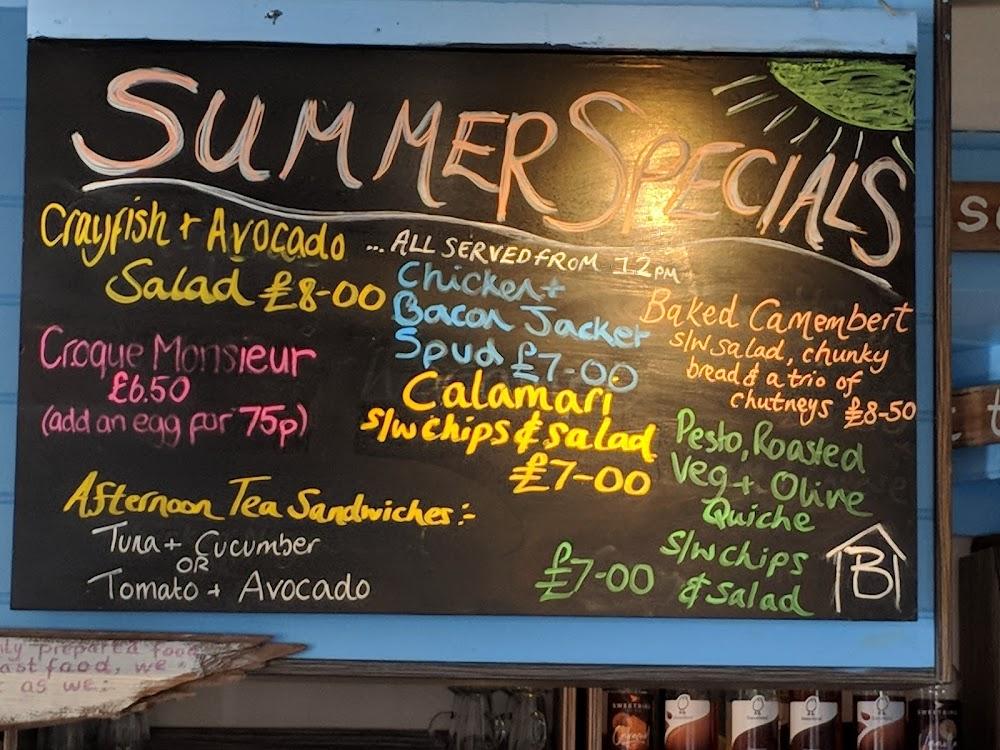 SUMMER SPECIALS
Crayfish + Avocado
Salad £8-00
... ALL SERVED FROM 12PM
Croque Monsieur
£6.50
(add an egg for 75p)
Chicken +
Bacon Jacket
Spud £7-00
Calamari
s/w chips & salad
£7-00
Baked Camembert
s/w salad, chunky
bread & a trio of
chutneys £8-50
Pesto, Roasted
Veg + Olive
Quiche
s/w chips
& salad
£7-00
Afternoon Tea Sandwiches:-
Tuna + Cucumber
OR
Tomato + Avocado
B
prepared food
food, we
as we: